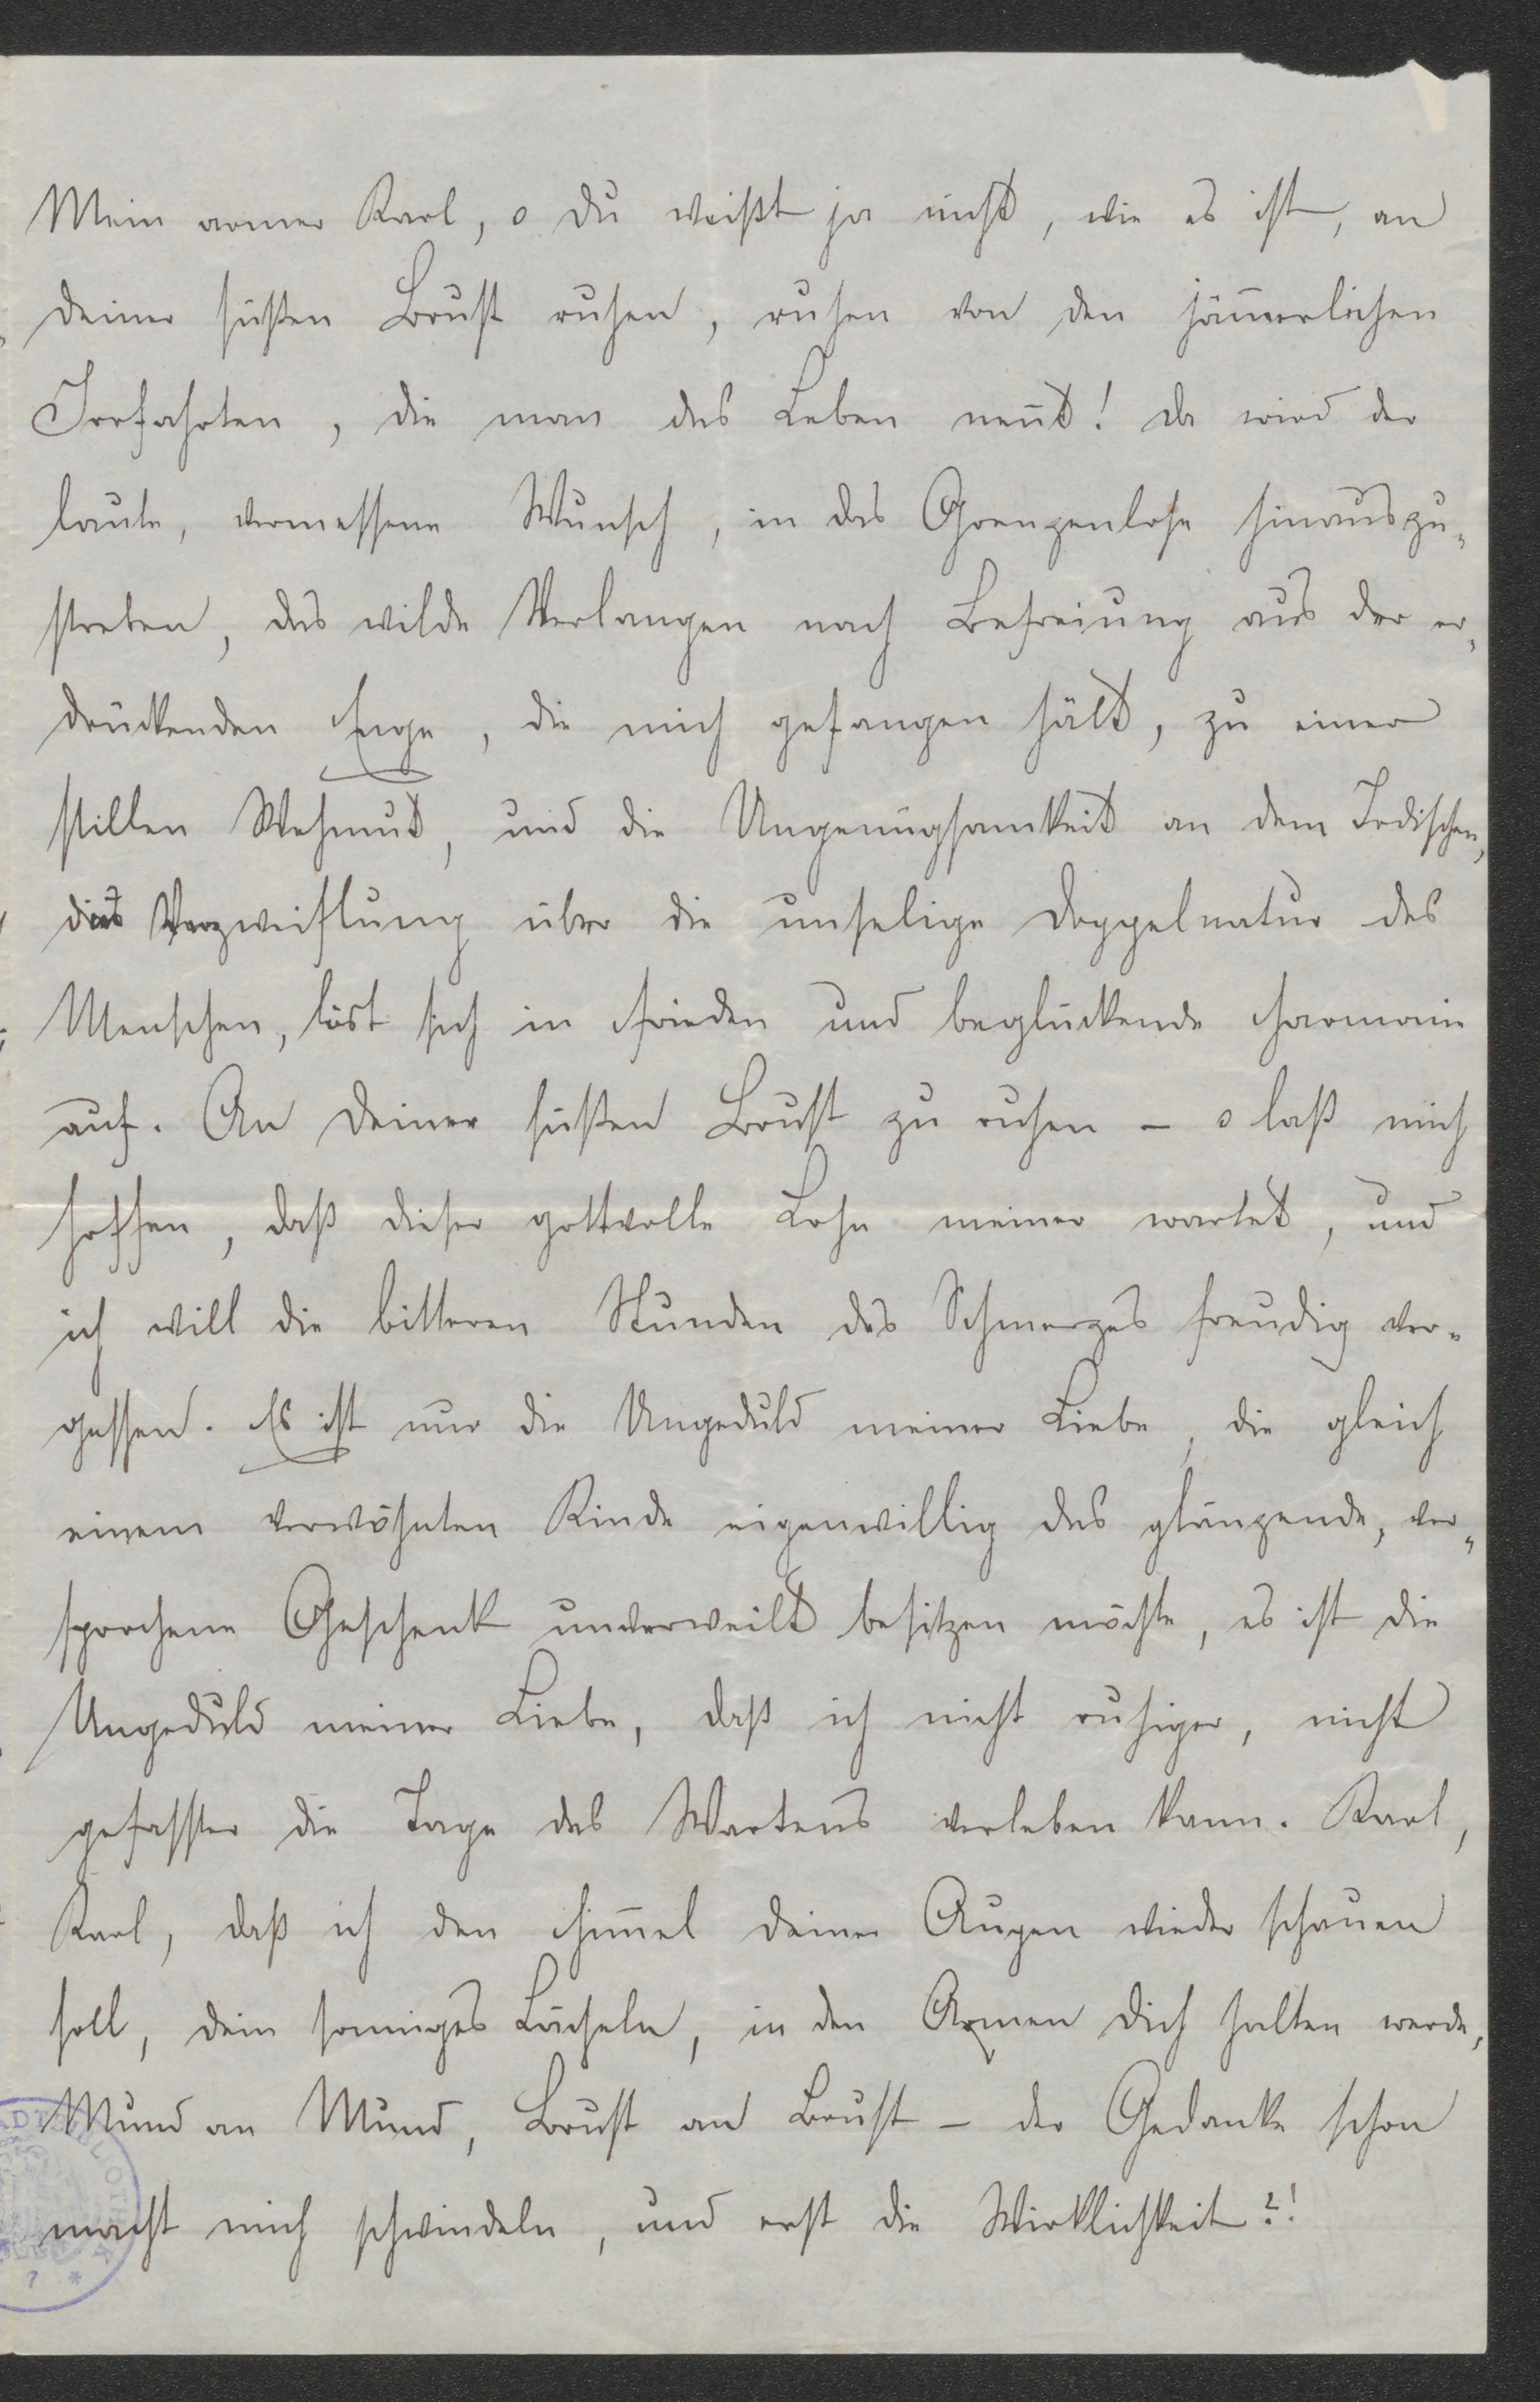 Mein armer Karl, o Du weißt ja nicht, wie es ist, an
Deiner süßen Brust ruhen, ruhen von den jam̅erlichen
Irrfahrten, die man das Leben nen̅t! Da wird der
laute, vermessene Wunsch, in das Grenzenlose hinauszu-
streben, das wilde Verlangen nach Befreiung aus der er-
drückenden Enge, die mich gefangen hält, zu einer
stillen Wehmut, und die Ungenügsamkeit an dem Irdischen,
die Verzweiflung über die unselige Doppelnatur des
Menschen, löst sich in Frieden und beglückende Harmonie
auf. An Deiner süßen Brust zu ruhen – o laß mich
hoffen, daß dieser gottvolle Lohn meiner wartet, und
ich will die bitteren Stunden des Schmerzes freudig ver-
gessen. Es ist nur die Ungeduld meiner Liebe, die gleich
einem verwöhnten Kinde eigenwillig das glänzende, ver-
sprochene Geschenk unverweilt besitzen möchte, es ist die
Ungeduld meiner Liebe, daß ich nicht ruhiger, nicht
gefasster die Tage des Wartens verleben kann. Karl,
Karl, daß ich den Him̅el Deiner Augen wieder schauen
soll, Dein sonniges Lächeln, in den Armen Dich halten werde,
Mund an Mund, Brust an Brust – der Gedanke schon
macht mich schwindeln, und erst die Wirklichkeit?!